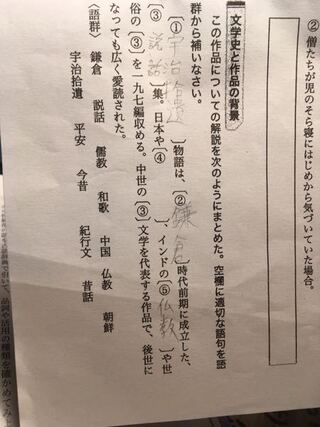 ② 僧たちが児のそら寝にはじめから気づいていた場合。
文学史と作品の背景
この作品についての解説を次のようにまとめた。空欄に適切な語句を語
群から補いなさい。
〔① 宇治拾遺 〕物語は、〔② 鎌倉 〕時代前期に成立した、
〔③ 説話 〕集。日本や〔④ 〕、インドの〔⑤ 仏教 〕や世
俗の〔③〕を一九七編収める。中世の〔③〕文学を代表する作品で、後世に
なっても広く愛読された。
〈語群〉
鎌倉 説話 儒教 和歌 中国 仏教 朝鮮
宇治拾遺 平安 今昔 紀行文 昔話
品詞や活用の種類を確かめてみ